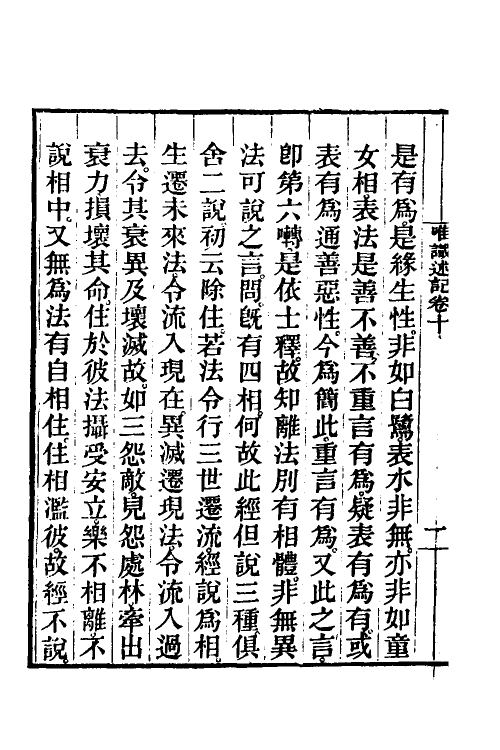 唯識述記卷十
十一
是有爲。是緣生性。非如白鷺表水非無。亦非如童
女相。表法是善不善。不重言有爲。疑表有爲有。或
表有爲通善惡性。今爲簡此。重言有爲。又此之言。
卽第六囀。是依士釋。故知離法別有相體。非無異
法可說之言。問。旣有四相。何故此經但說三種。俱
舍二說。初云除住。若法令行三世遷流。經說爲相。
生遷未來法。令流入現在。異滅遷現法。令流入過
去。令其衰異及壞滅故。如三怨敵。見怨處林。牽出
衰力損壞其命。住於彼法攝受安立。樂不相離。不
說相中。又無爲法有自相住。住相濫彼。故經不說。